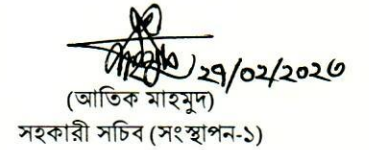 ২৭/০২/২০২৩
(আতিক মাহমুদ)
সহকারী সচিব (সংস্থাপন-১)